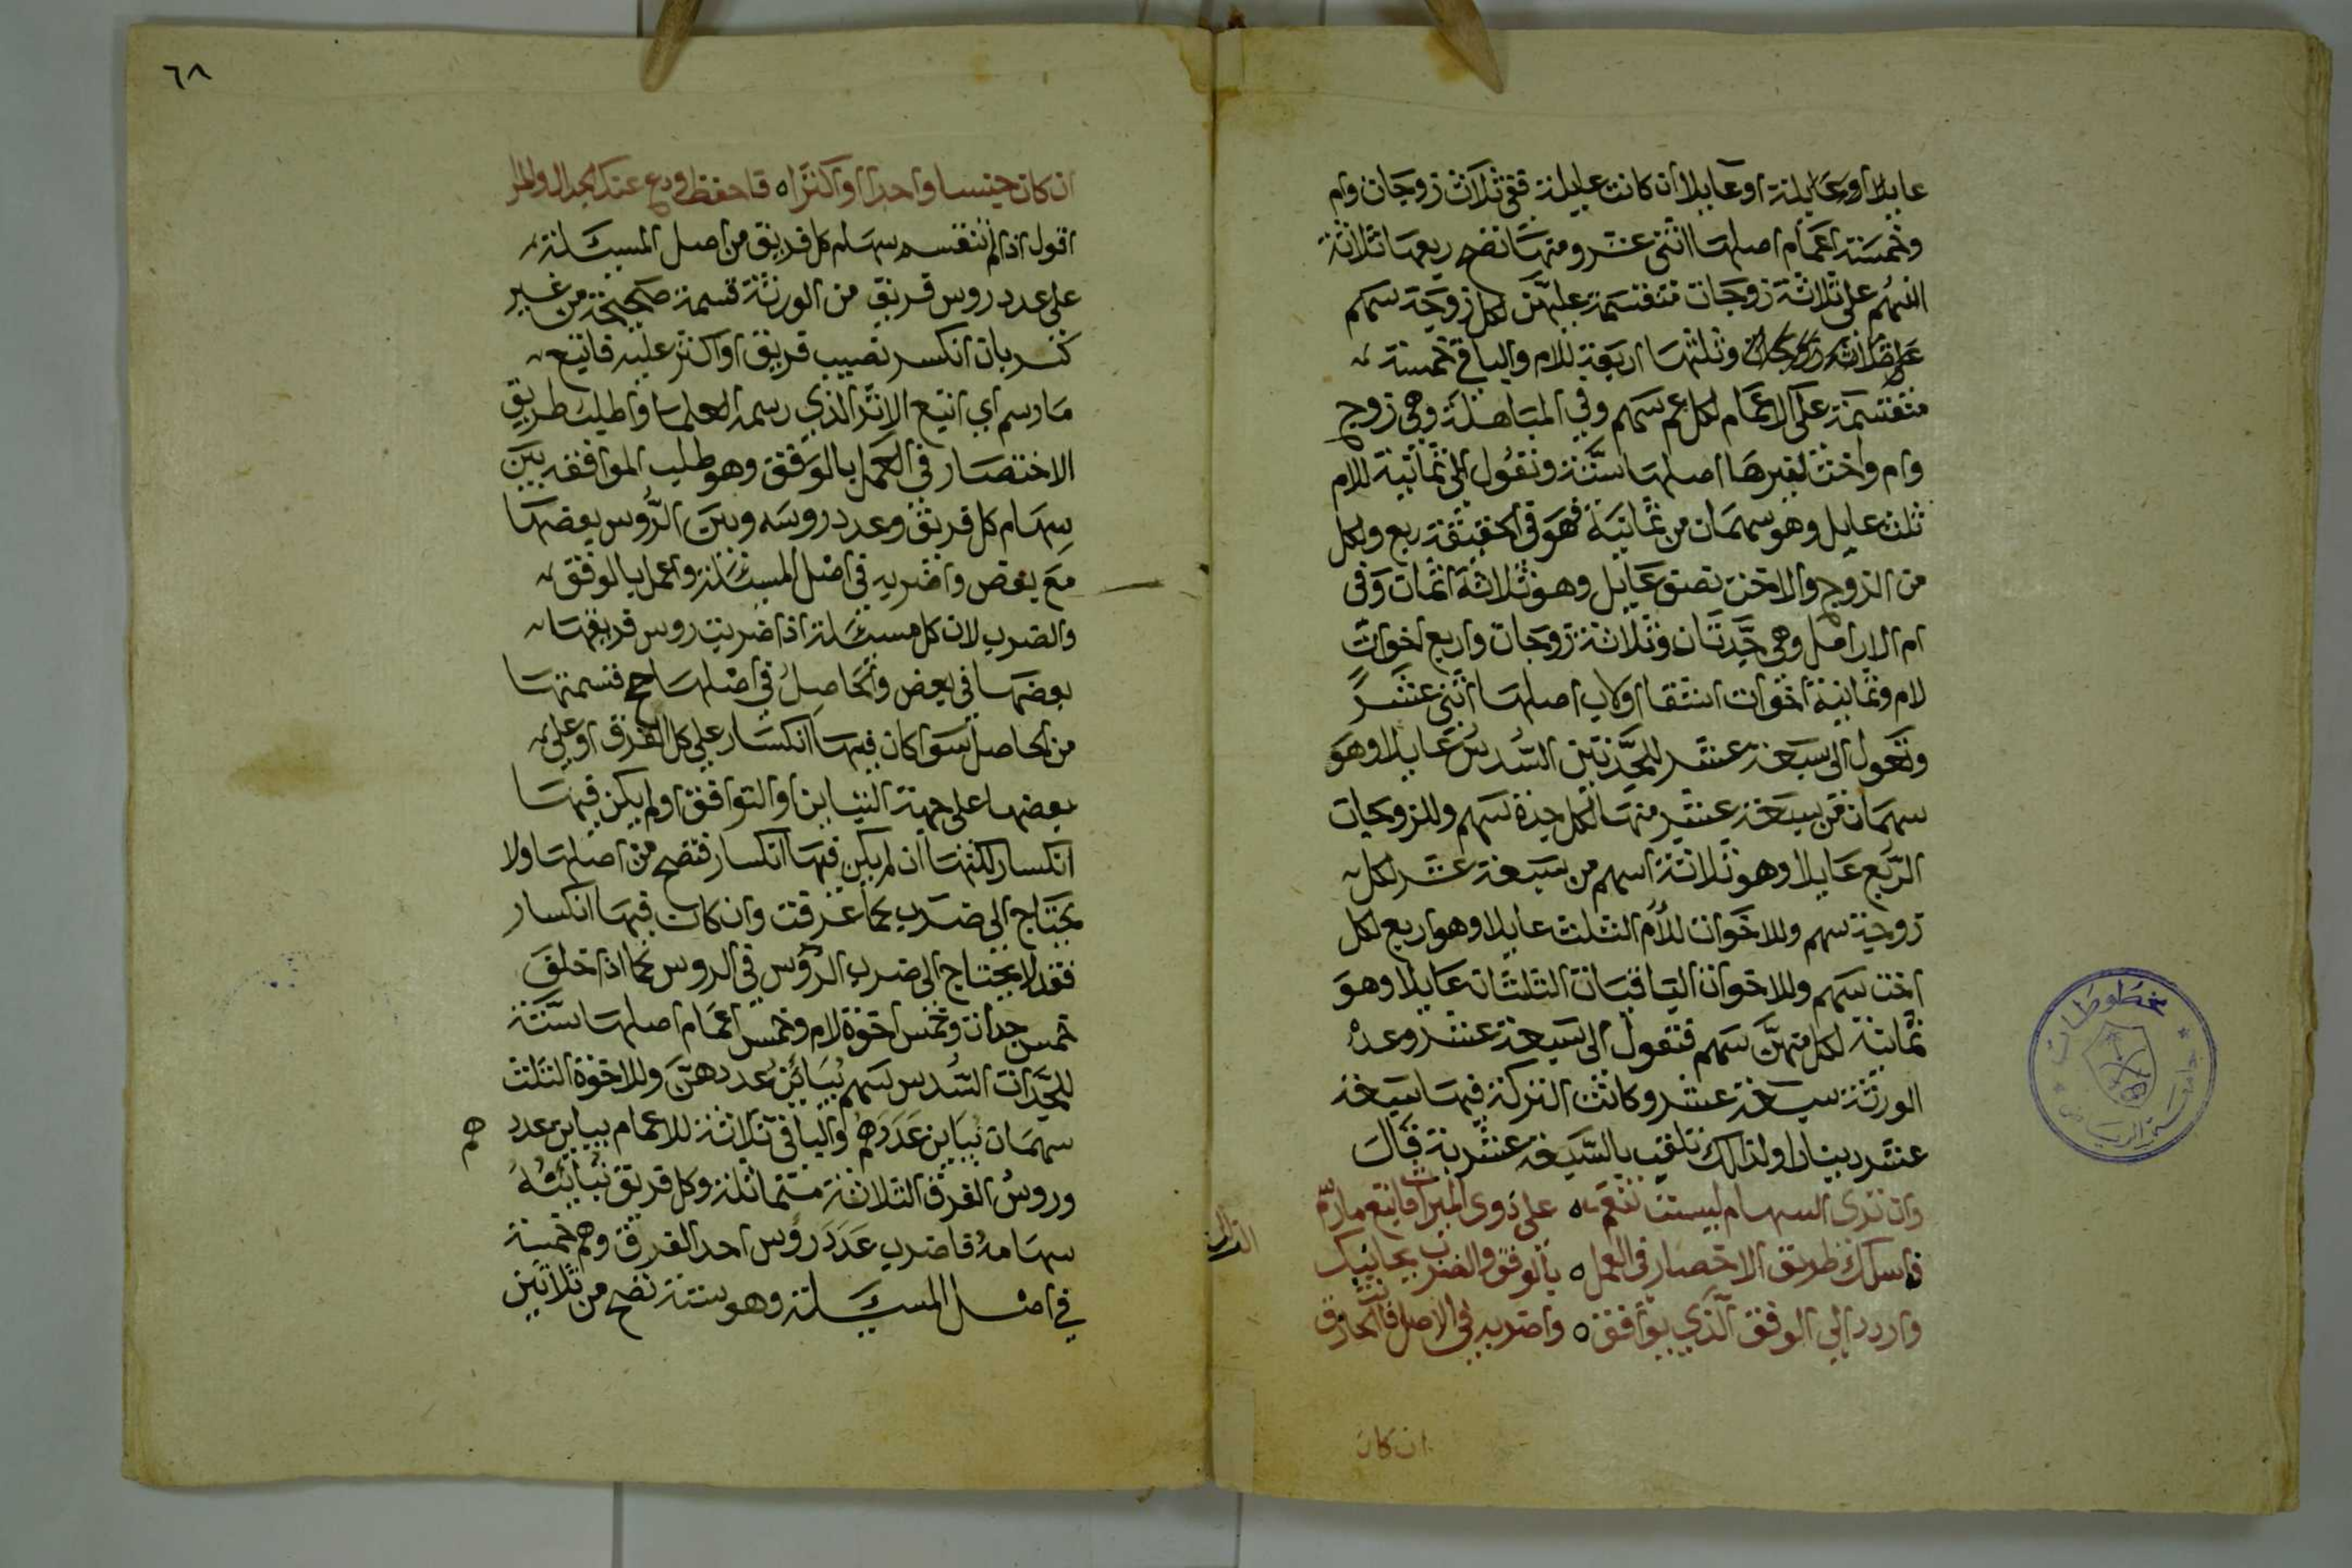 عايلا او عايلة او عايلا ان كانت عايلة ففي ثلاث زوجات وام
وخمسة اعمام اصلها اثنى عشر ومنها تصح ربعها ثلاثة
اسهم على ثلاثة زوجات منقسمة عليهن لكل زوجة سهم
على ثلاثة زوجات وثلثها اربعة للام والباقي خمسة
منقسمة على الاعمام لكل عم سهم وفي المباهلة وهي زوج
وام واخت لغيرها اصلها ستة وتعول الى ثمانية للام
ثلث عايل وهو سهمان من ثمانية فهو في الحقيقة ربع ولكل
من الزوج والاخت نصف عايل وهو ثلاثة اثمان وفي
ام الارامل وهي جدتان وثلاثة زوجات واربع اخوات
لام وثمانية اخوات اشقا او لاب اصلها اثنى عشر
وتعول الى سبعة عشر للجدتين السدس عايلا وهو
سهمان من سبعة عشر منها لكل جدة سهم وللزوجات
الربع عايلا وهو ثلاثة اسهم من سبعة عشر لكل
زوجة سهم وللاخوات للام الثلث عايلا وهو اربع لكل
اخت سهم وللاخوات الباقيات الثلثان عايلا وهو
ثمانية لكل منهن سهم فتعول الى سبعة عشر وعدة
الورثة سبعة عشر وكانت التركة فيها سبعة
عشر دينارا ولذالك تلقب بالسبعة عشرية قال
وان ترى السهام ليست تنقسم ه على ذوى الميراث فاتبع ما رسم
فاسلك طريق الاختصار في العمل ه بالوفق والضرب يجانبك
الزلل
واردد الى الوفق الذي يوافق ه واضربه في الاصل فانت الحاذق
ان كان
٦٨
ان كان جنسا واحدا او اكثرا ه فاحفظ ودع عنك الجدال والمرا
اقول اذا لم تنقسم سهام كل فريق من اصل المسيلة
على عدد روس فريق من الورثة قسمة صحيحة من غير
كسر بان انكسر نصيب فريق او اكثر عليه فاتبع
ما رسم اي اتبع الاثر الذي رسمه العلما واطلب طريق
الاختصار في العمل بالوفق وهو طلب الموافقه بين
سهام كل فريق وعدد روسه وبين الرؤس بعضها
مع بعض واضربه في اصل المسئلة واعمل بالوفق
والضرب لان كل مسئلة اذا ضربت روس فريقها
بعضها في بعض والحاصل في اصلها صح قسمتها
من الحاصل سوا كان فيها انكسار على كل الفرق او على
بعضها على جهة التباين او التوافق او لم يكن فيها
انكسار لكنها ان لم يكن فيها انكسار فتصح من اصلها ولا
يحتاج الى ضرب كما عرفت وان كان فيها انكسار
فقد لا يحتاج الى ضرب الرؤس في الروس كما اذا خلف
خمس جدات وخمس اخوة لام وخمس اعمام اصلها ستة
للجدات السدس سهم يباين عددهن وللاخوة الثلث
سهمان يباين عددهم والباقي ثلاثة للاعمام يباين عدد
هم
وروس الفرق الثلاثة متماثلة وكل فريق تباينه
سهامه فاضرب عدد رؤس احد الفرق وهم خمسة
في اصل المسئلة وهو ستة تصح من ثلاثين
مخطوطات
جامعة الرياض